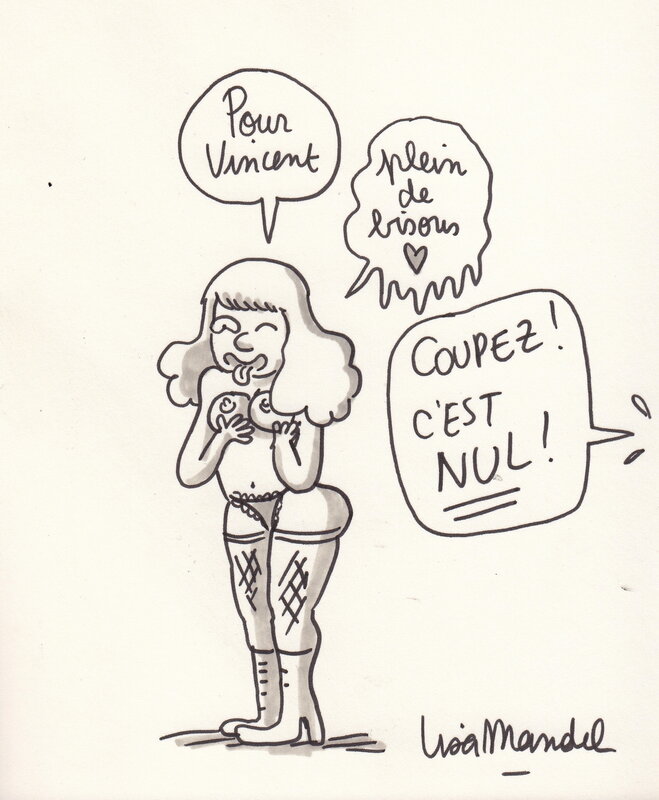 Pour
Vincent
plein
de
bisous
COUPEZ !
C'EST
NUL !
Lisa Mandel